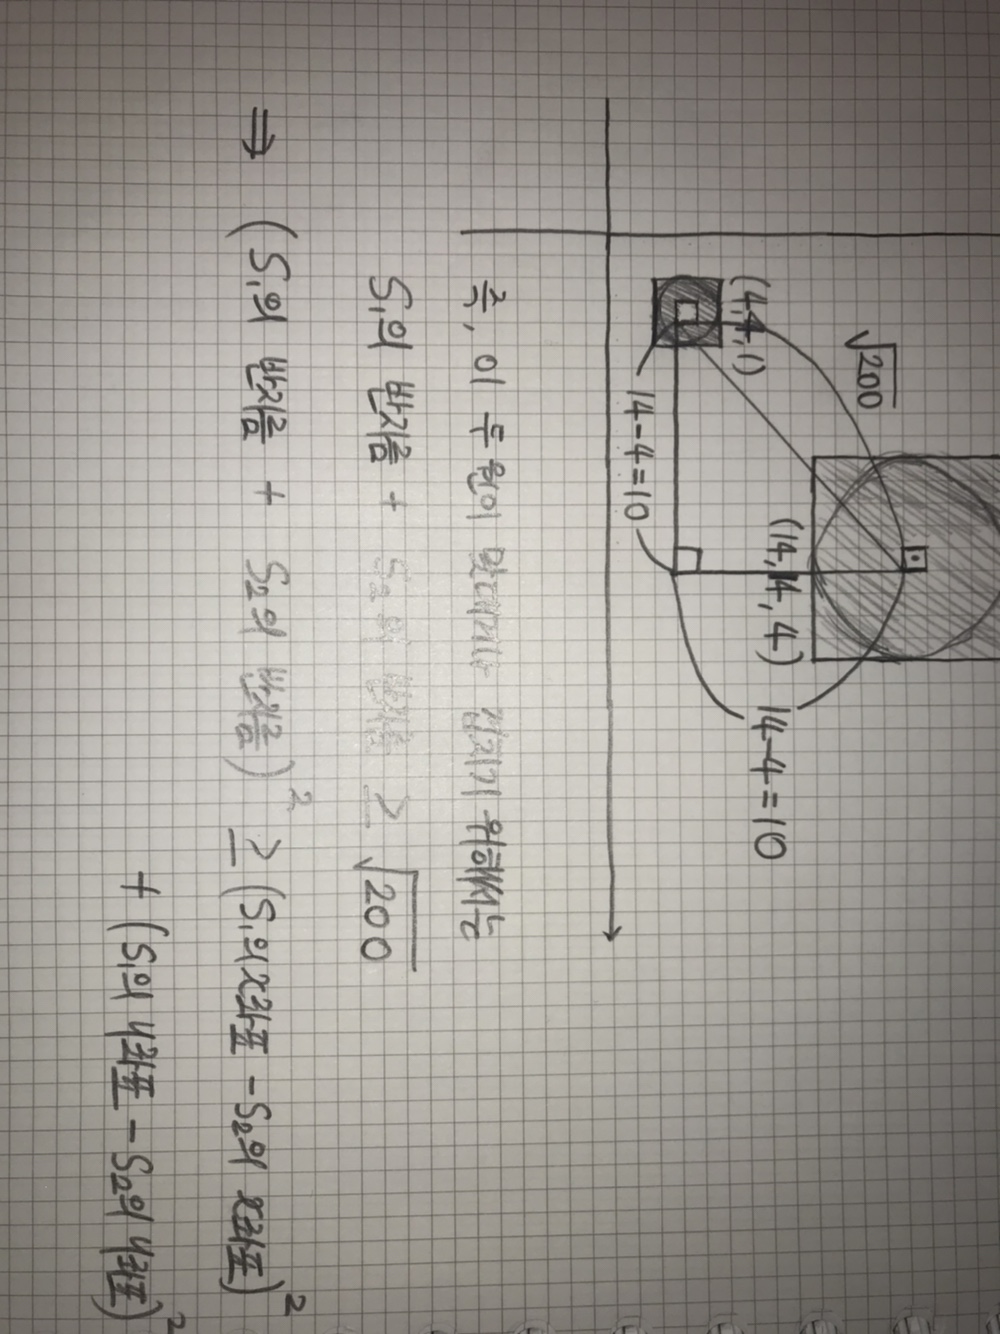 √200
(14, 14, 4)
14-4=10
(4,4,1)
14-4=10
즉, 이 두 원이 맞대거나 겹치기 위해서는
S₁의 반지름 + S₂의 반지름 ≥ √200
⇒ (S₁의 반지름 + S₂의 반지름)² ≥ (S₁의 x좌표 - S₂의 x좌표)²
+ (S₁의 y좌표 - S₂의 y좌표)²